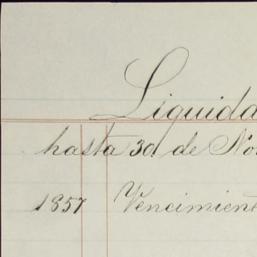 Liquida
hasta 30 de No
1857 Vencimient